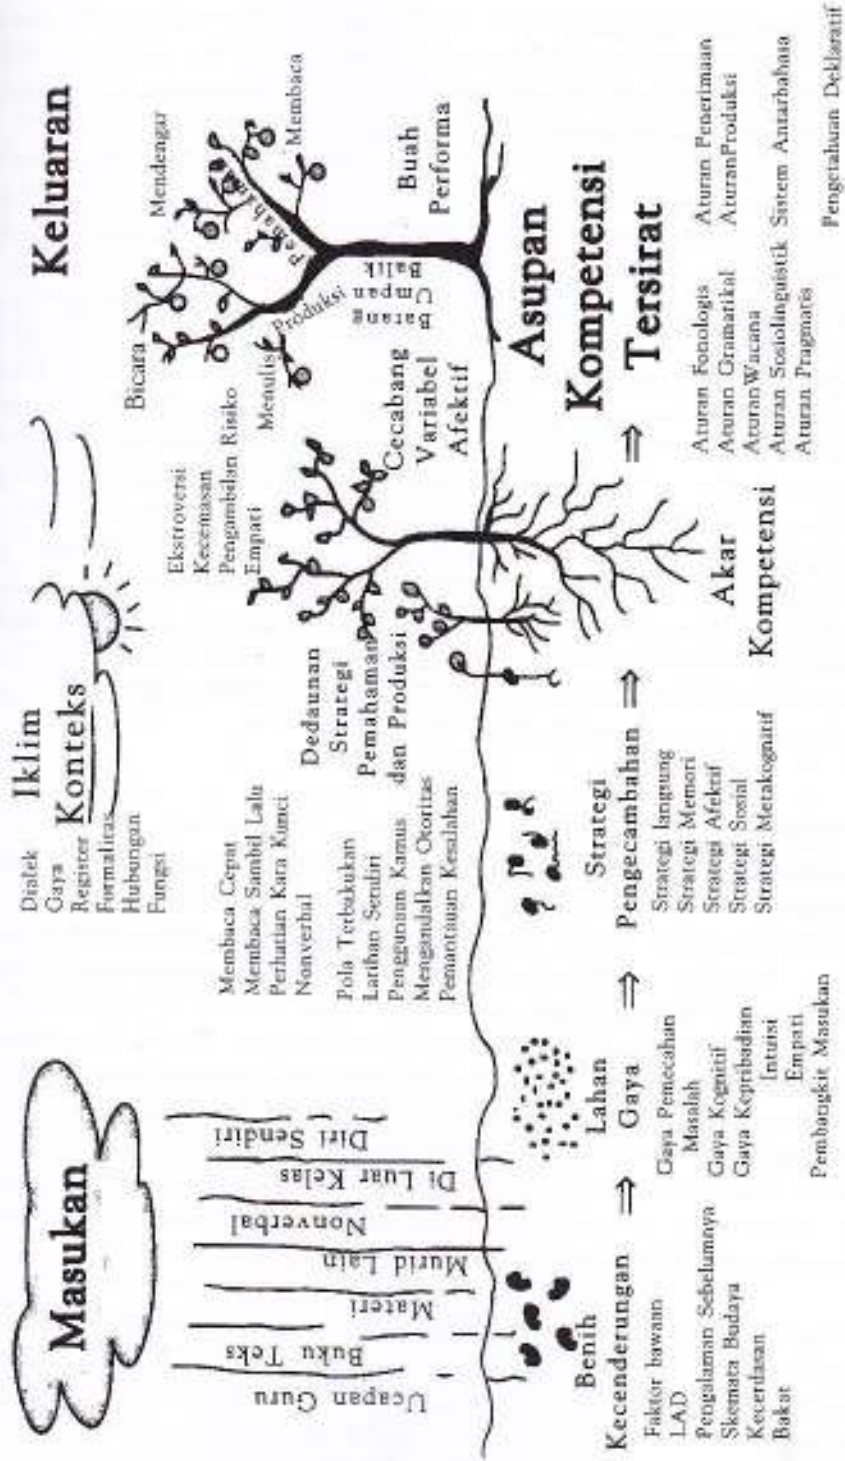 Masukan
Ucapan Guru
Buku Teks
Materi
Murid Lain
Nonverbal
Di Luar Kelas
Diri Sendiri
Iklim
Konteks
Dialek
Gaya
Register
Formalitas
Hubungan
Fungsi
Keluaran
Membaca Cepat
Membaca Sambil Lalu
Perhatian Kata Kunci
Nonverbal
Pola Terbakukan
Latihan Sendiri
Penggunaan Kamus
Mengandalkan Otoritas
Pemantauan Kesalahan
Dedaunan
Strategi
Pemahaman
dan Produksi
Ekstroversi
Kecemasan
Pengambilan Risiko
Empati
Cecabang
Variabel
Afektif
Bicara
Menulis
Produksi
Mendengar
Membaca
Pemahaman
Barang
Umpan
Balik
Buah
Performa
Benih
Kecenderungan ⇒
Faktor bawaan
LAD
Pengalaman Sebelumnya
Skemata Budaya
Kecerdasan
Bakat
Lahan
Gaya ⇒
Gaya Pemecahan
Masalah
Gaya Kognitif
Gaya Kepribadian
Intuisi
Empati
Pembangkit Masukan
Strategi
Pengecambahan ⇒
Strategi langsung
Strategi Memori
Strategi Afektif
Strategi Sosial
Strategi Metakognitif
Akar
Kompetensi
⇒
Asupan
Kompetensi
Tersirat
Aturan Fonologis
Aturan Gramatikal
Aturan Wacana
Aturan Sosiolinguistik
Aturan Pragmatis
Aturan Penerimaan
AturanProduksi
Sistem Antarbahasa
Pengetahuan Deklaratif